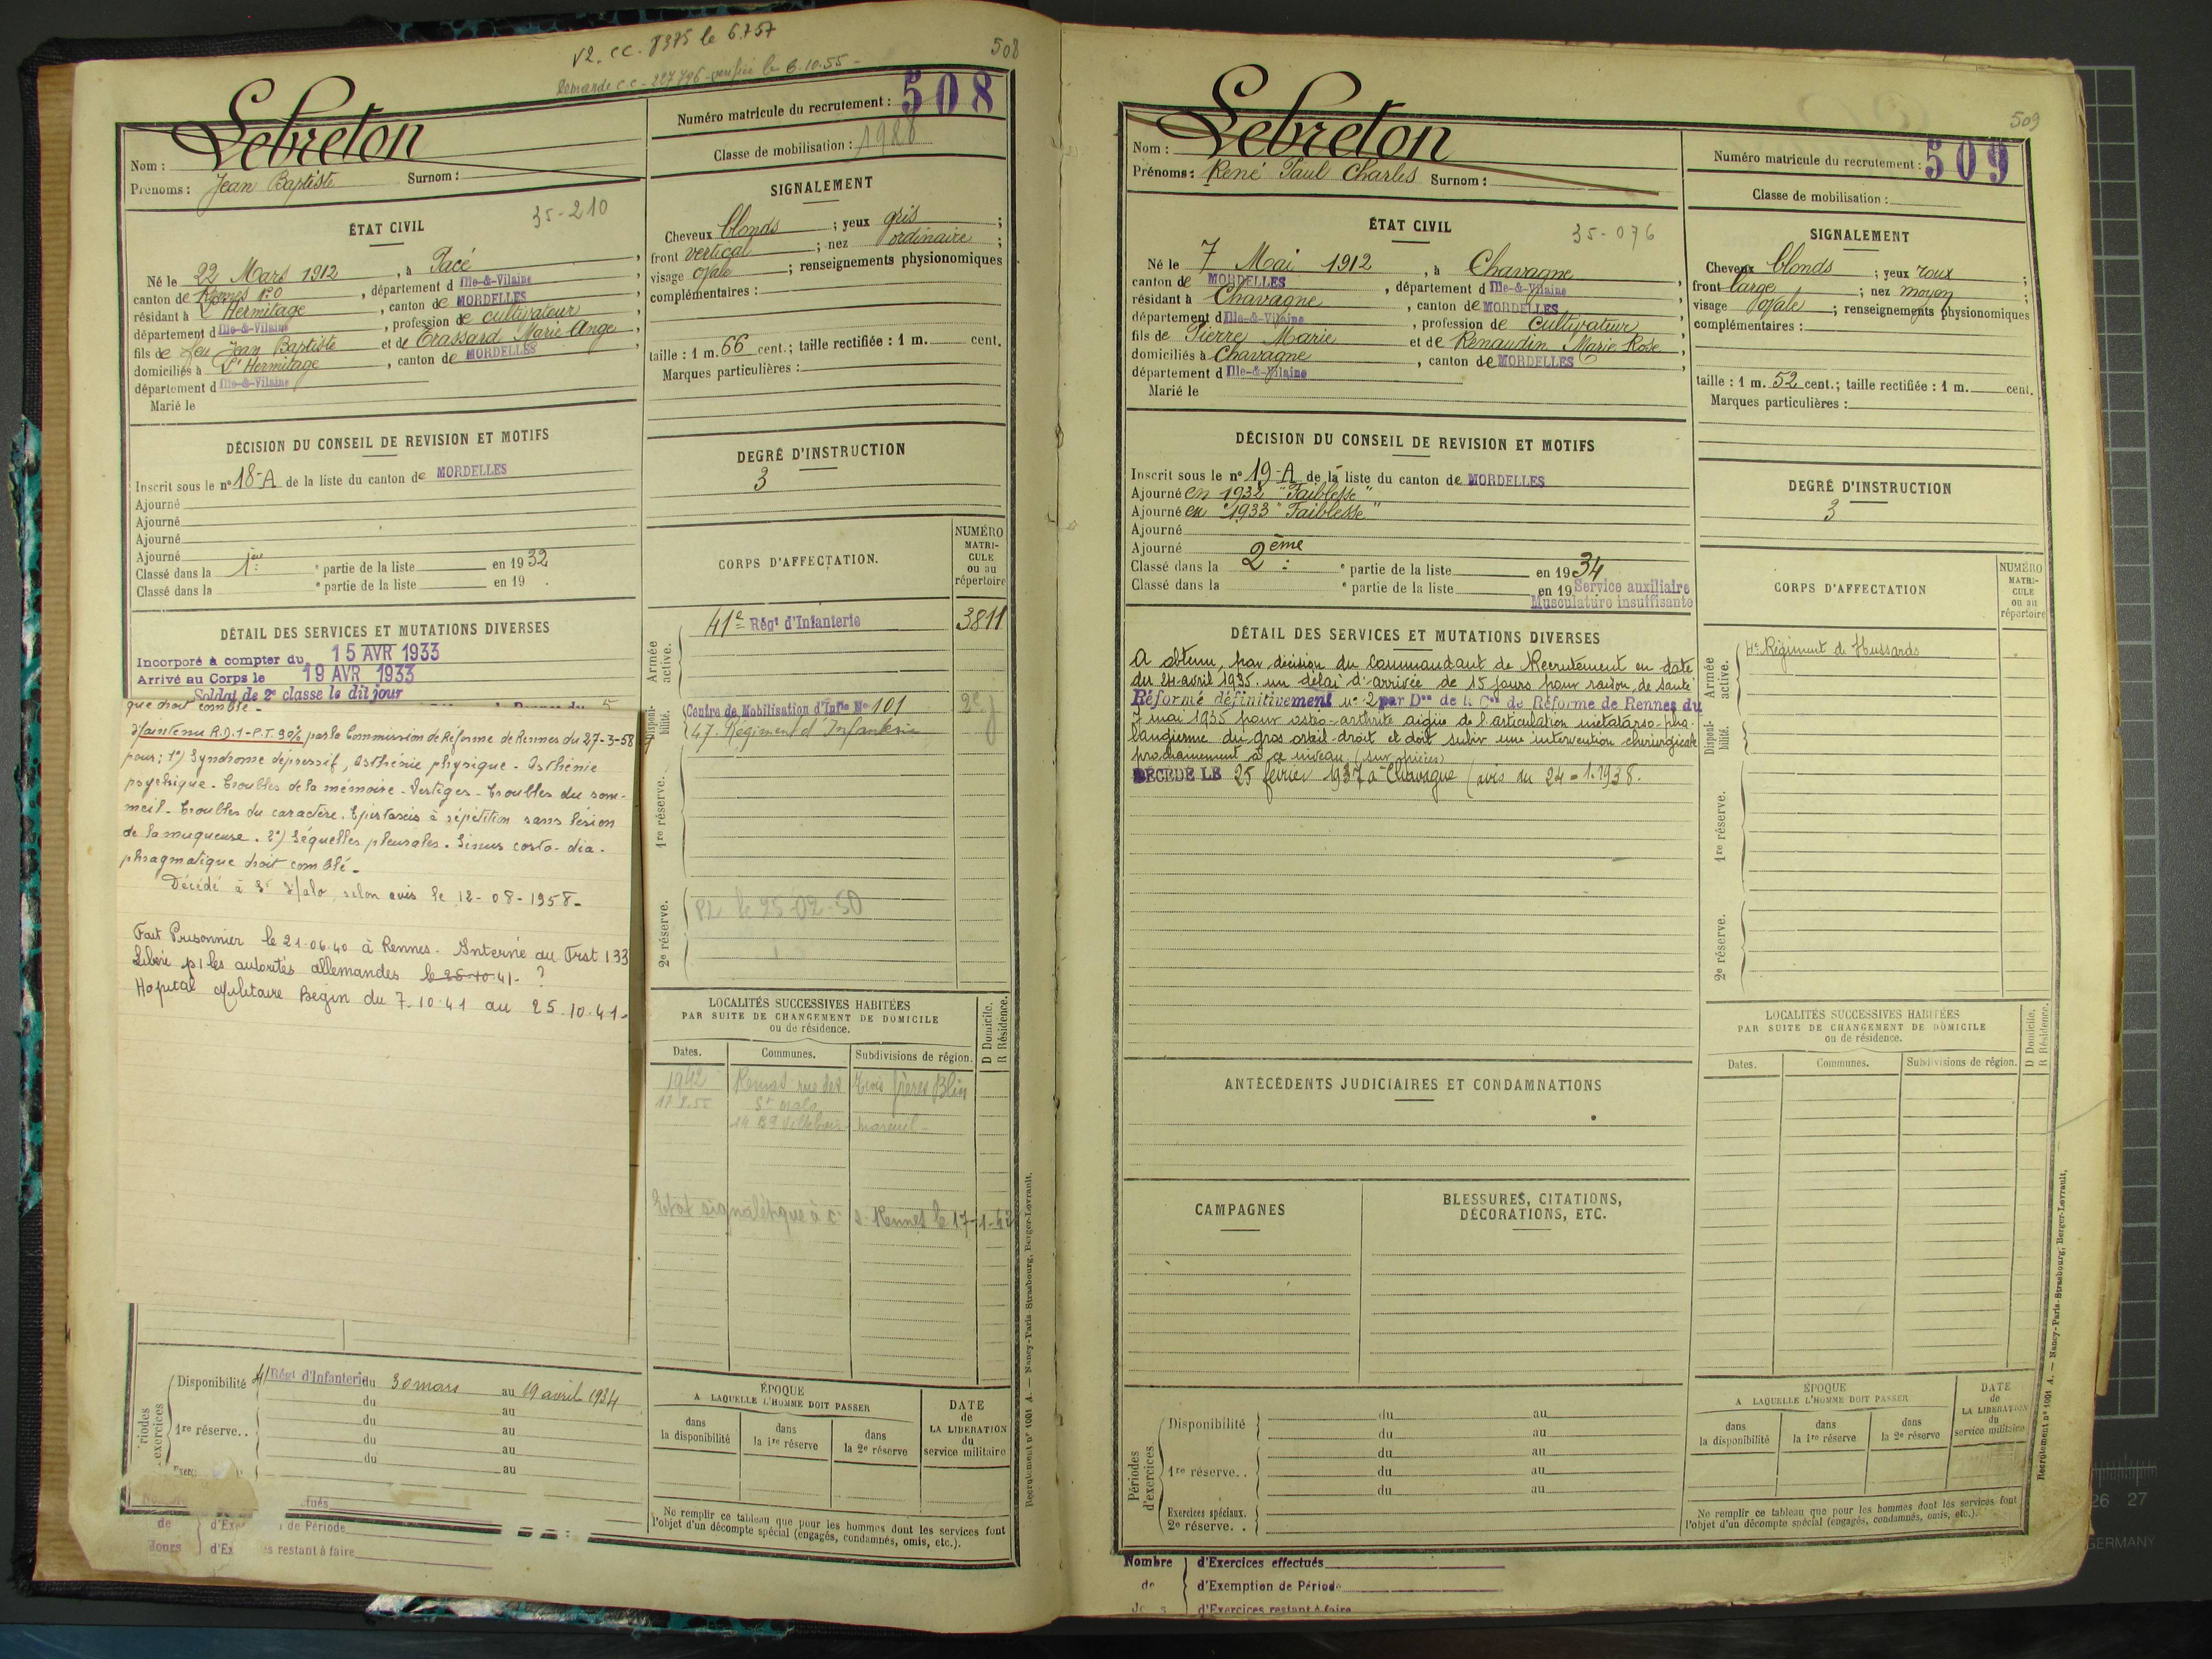 V2. CC. 8375 le 6.7.57
Demande C.C - 227 796 - vérifiée le 6.10.55 -
508
Numéro matricule du recrutement : 508
Classe de mobilisation :
Nom : Lebreton
Prénoms : Jean Baptiste Surnom :
ÉTAT CIVIL
35-210
Né le 22 Mars 1912, à Pacé,
canton de Rennes N.O, département d Ille-&-Vilaine
résidant à L'Hermitage, canton de MORDELLES
département d Ille-&-Vilaine, profession de cultivateur
fils de feu Jean Baptiste et de Trassard Marie Ange,
domiciliés à L'Hermitage, canton de MORDELLES
département d Ille-&-Vilaine
Marié le
SIGNALEMENT
Cheveux blonds ; yeux gris ;
front vertical ; nez ordinaire ;
visage ovale ; renseignements physionomiques
complémentaires :
taille : 1 m. 66 cent. ; taille rectifiée : 1 m. cent.
Marques particulières :
DÉCISION DU CONSEIL DE REVISION ET MOTIFS
Inscrit sous le n° 18-A de la liste du canton de MORDELLES
Ajourné
Ajourné
Ajourné
Ajourné
Classé dans la 1ère e partie de la liste en 1932
Classé dans la e partie de la liste en 19 .
DEGRÉ D'INSTRUCTION
3
DÉTAIL DES SERVICES ET MUTATIONS DIVERSES
Incorporé à compter du 15 AVR 1933
Arrivé au Corps le 19 AVR 1933
Soldat de 2e classe le dit jour
que droit comblé -
Maintenu R.D.1-P.T. 90% par la Commission de Réforme de Rennes du 27-3-58
pour : 1°) Syndrome dépressif, Asthénie physique - Asthénie
psychique - Troubles de la mémoire - Vertiges - Troubles du som-
meil - Troubles du caractère. Epistaxis à répétition sans lésion
de la muqueuse. 2°) Séquelles pleurales. Sinus costo-dia-
phragmatique droit comblé -
Décédé à St Malo, selon avis le 12-08-1958-
Fait Prisonnier le 21.06.40 à Rennes. Interné au Frst 133
Libéré p/ les autorités allemandes le 25-10-41- ?
Hopital Militaire Bégin du 7-10-41 au 25.10.41-
CORPS D'AFFECTATION.
NUMÉRO
MATRI-
CULE
ou au
répertoire
Armée active.
41e Régt d'Infanterie 3811
Disponibilité.
Centre de Mobilisation d'Infie No 101
47e Régiment d'Infanterie
1re réserve.
2e réserve.
PL le 25-02-50
LOCALITÉS SUCCESSIVES HABITÉES
PAR SUITE DE CHANGEMENT DE DOMICILE
ou de résidence.
D Domicile.
R Résidence.
Dates. Communes. Subdivisions de région.
1942 Rennes rue des Trois frères Blin
St Malo
14 Bd Villebois Mareuil -
Etat signalétique à C
Rennes le 17-1-42
Périodes d'exercices
Disponibilité 41 Régt d'Infanterie du 30 mars au 19 avril 1934
du au
1re réserve.. du au
du au
du au
au
de
Jours
tués
d'Ex de Période
d'Ex s restant à faire
ÉPOQUE
A LAQUELLE L'HOMME DOIT PASSER
dans la disponibilité
dans la 1re réserve
dans la 2e réserve
DATE
de
LA LIBÉRATION
du
service militaire
Ne remplir ce tableau que pour les hommes dont les services font
l'objet d'un décompte spécial (engagés, condamnés, omis, etc.).
Recrutement n° 1001 A. — Nancy-Paris-Strasbourg, Berger-Levrault.
509
Numéro matricule du recrutement : 509
Classe de mobilisation :
Nom : Lebreton
Prénoms : René Paul Charles Surnom :
ÉTAT CIVIL
35-076
Né le 7 Mai 1912, à Chavagne
canton de MORDELLES, département d Ille-&-Vilaine,
résidant à Chavagne, canton de MORDELLES
département d Ille-&-Vilaine, profession de cultivateur,
fils de Pierre Marie et de Renaudin Marie Rose,
domiciliés à Chavagne, canton de MORDELLES
département d Ille-&-Vilaine
Marié le
SIGNALEMENT
Cheveux blonds ; yeux roux ;
front large ; nez moyen ;
visage ovale ; renseignements physionomiques
complémentaires :
taille : 1 m. 52 cent. ; taille rectifiée : 1 m. cent.
Marques particulières :
DÉCISION DU CONSEIL DE REVISION ET MOTIFS
Inscrit sous le n° 19-A de la liste du canton de MORDELLES
Ajourné en 1932 "Faiblesse"
Ajourné en 1933 "Faiblesse"
Ajourné
Ajourné
Classé dans la 2ème e partie de la liste en 1934
Classé dans la e partie de la liste en 19 Service auxiliaire
Musculature insuffisante
DEGRÉ D'INSTRUCTION
3
DÉTAIL DES SERVICES ET MUTATIONS DIVERSES
A obtenu, par décision du Commandant de Recrutement en date
du 24 avril 1935. un délai d'arrivée de 15 jours pour raison de santé
Réformé définitivement n° 2 par Don de la Con de Réforme de Rennes du
7 mai 1935 pour ostéo-arthrite aigüe de l'articulation métatarso-pha-
langienne du gros orteil droit et doit subir une intervention chirurgicale
prochainement à ce niveau. (sur pièces)
DÉCÉDÉ LE 25 février 1937 à Chavagne (avis du 24-1-1938.
CORPS D'AFFECTATION
NUMÉRO
MATRI-
CULE
ou au
répertoire
Armée active.
4e Régiment de Hussards
Disponibilité.
1re réserve.
2e réserve.
ANTÉCÉDENTS JUDICIAIRES ET CONDAMNATIONS
CAMPAGNES
BLESSURES, CITATIONS,
DÉCORATIONS, ETC.
LOCALITÉS SUCCESSIVES HABITÉES
PAR SUITE DE CHANGEMENT DE DOMICILE
ou de résidence.
D Domicile.
R Résidence.
Dates. Communes. Subdivisions de région.
Périodes d'exercices.
Disponibilité du au
du au
1re réserve.. du au
du au
du au
Exercices spéciaux.
2e réserve. .
ÉPOQUE
A LAQUELLE L'HOMME DOIT PASSER
dans la disponibilité
dans la 1re réserve
dans la 2e réserve
DATE
de
LA LIBÉRATION
du
service militaire
Ne remplir ce tableau que pour les hommes dont les services font
l'objet d'un décompte spécial (engagés, condamnés, omis, etc.).
Nombre d'Exercices effectués
de d'Exemption de Période
d'Exercices restant à faire
Recrutement n° 1001 A. — Nancy-Paris-Strasbourg, Berger-Levrault.
26 27
GERMANY